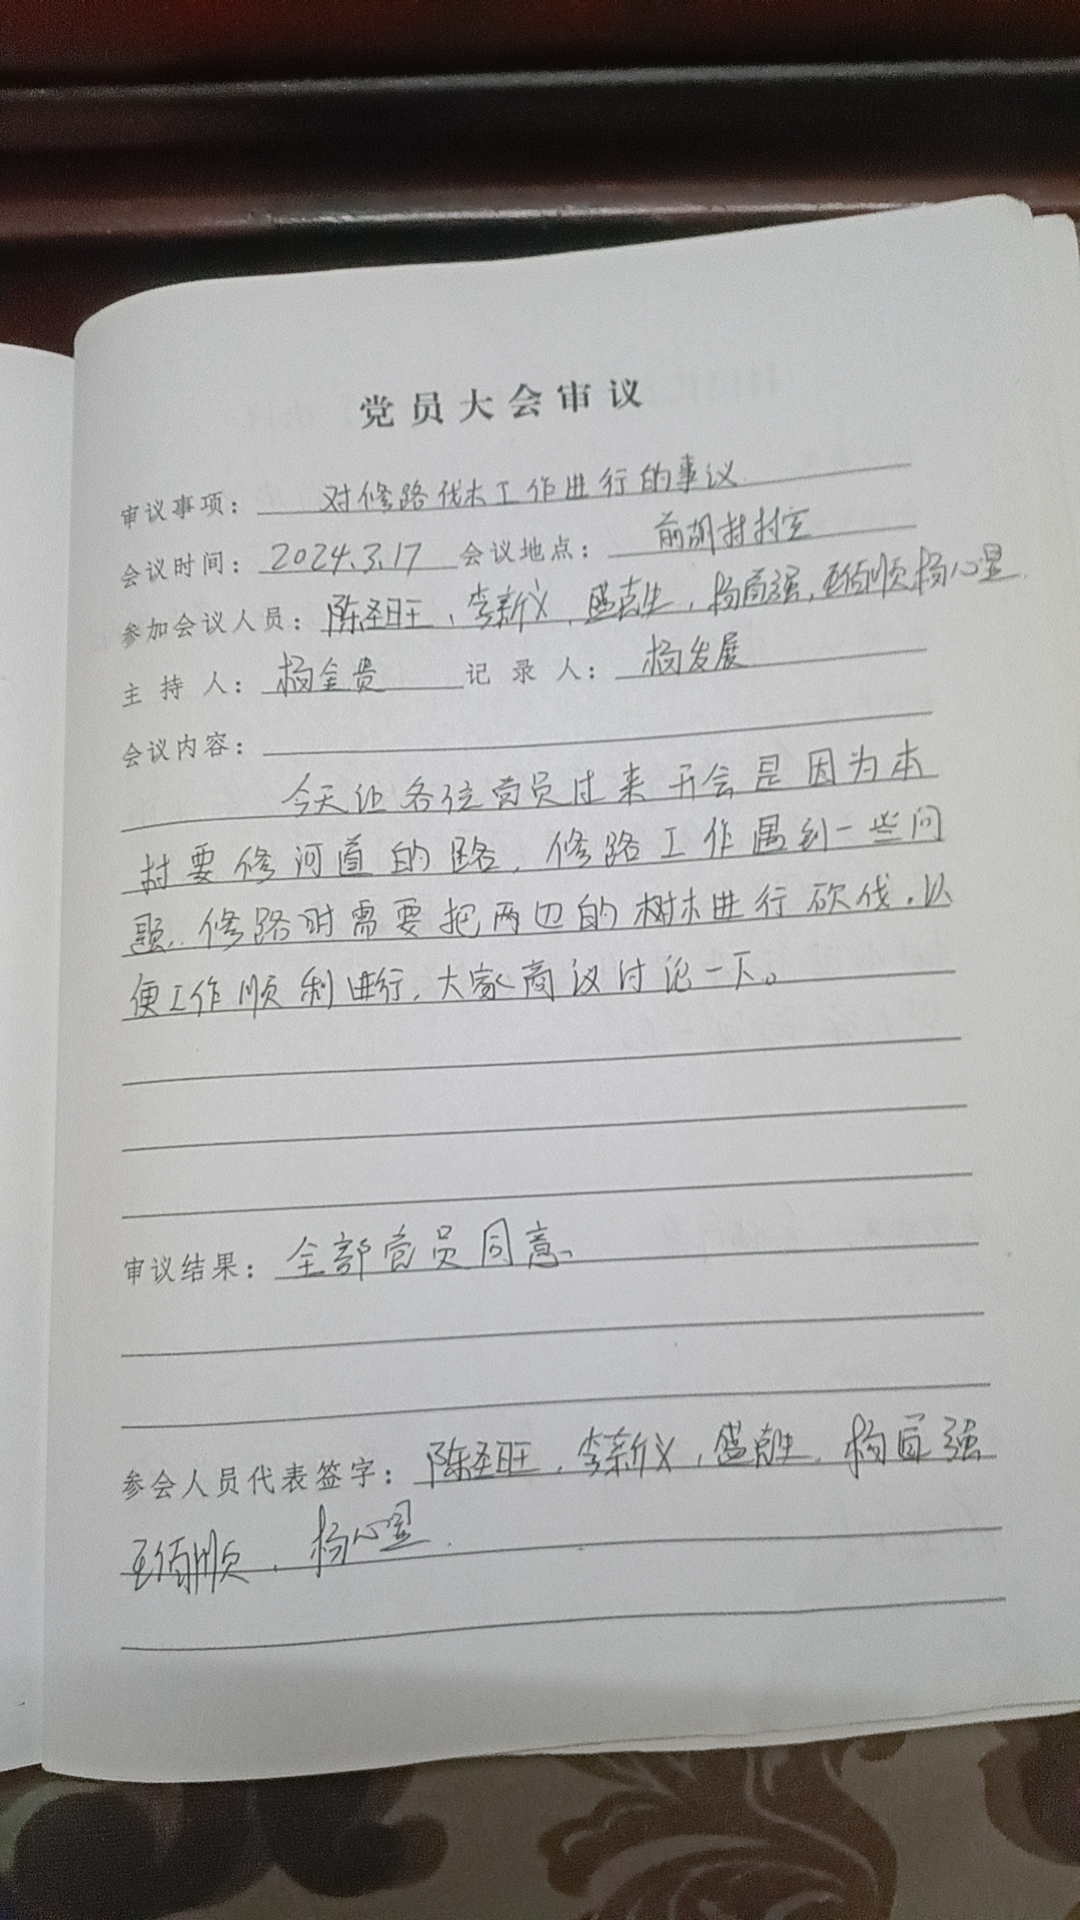 党员大会审议
审议事项：对修路伐木工作进行的事议
会议时间：2024.3.17 会议地点：前胡村村室
参加会议人员：陈圣旺，李新义，盛克生，杨百强，王佰顺 杨心显
主持人：杨金贵 记录人：杨发展
会议内容：
今天让各位党员过来开会是因为本
村要修河道的路，修路工作遇到一些问
题，修路时需要把两边的树木进行砍伐，以
便工作顺利进行，大家商议讨论一下。
审议结果：全部党员同意。
参会人员代表签字：陈圣旺，李新义，盛克生，杨百强
王佰顺，杨心显.